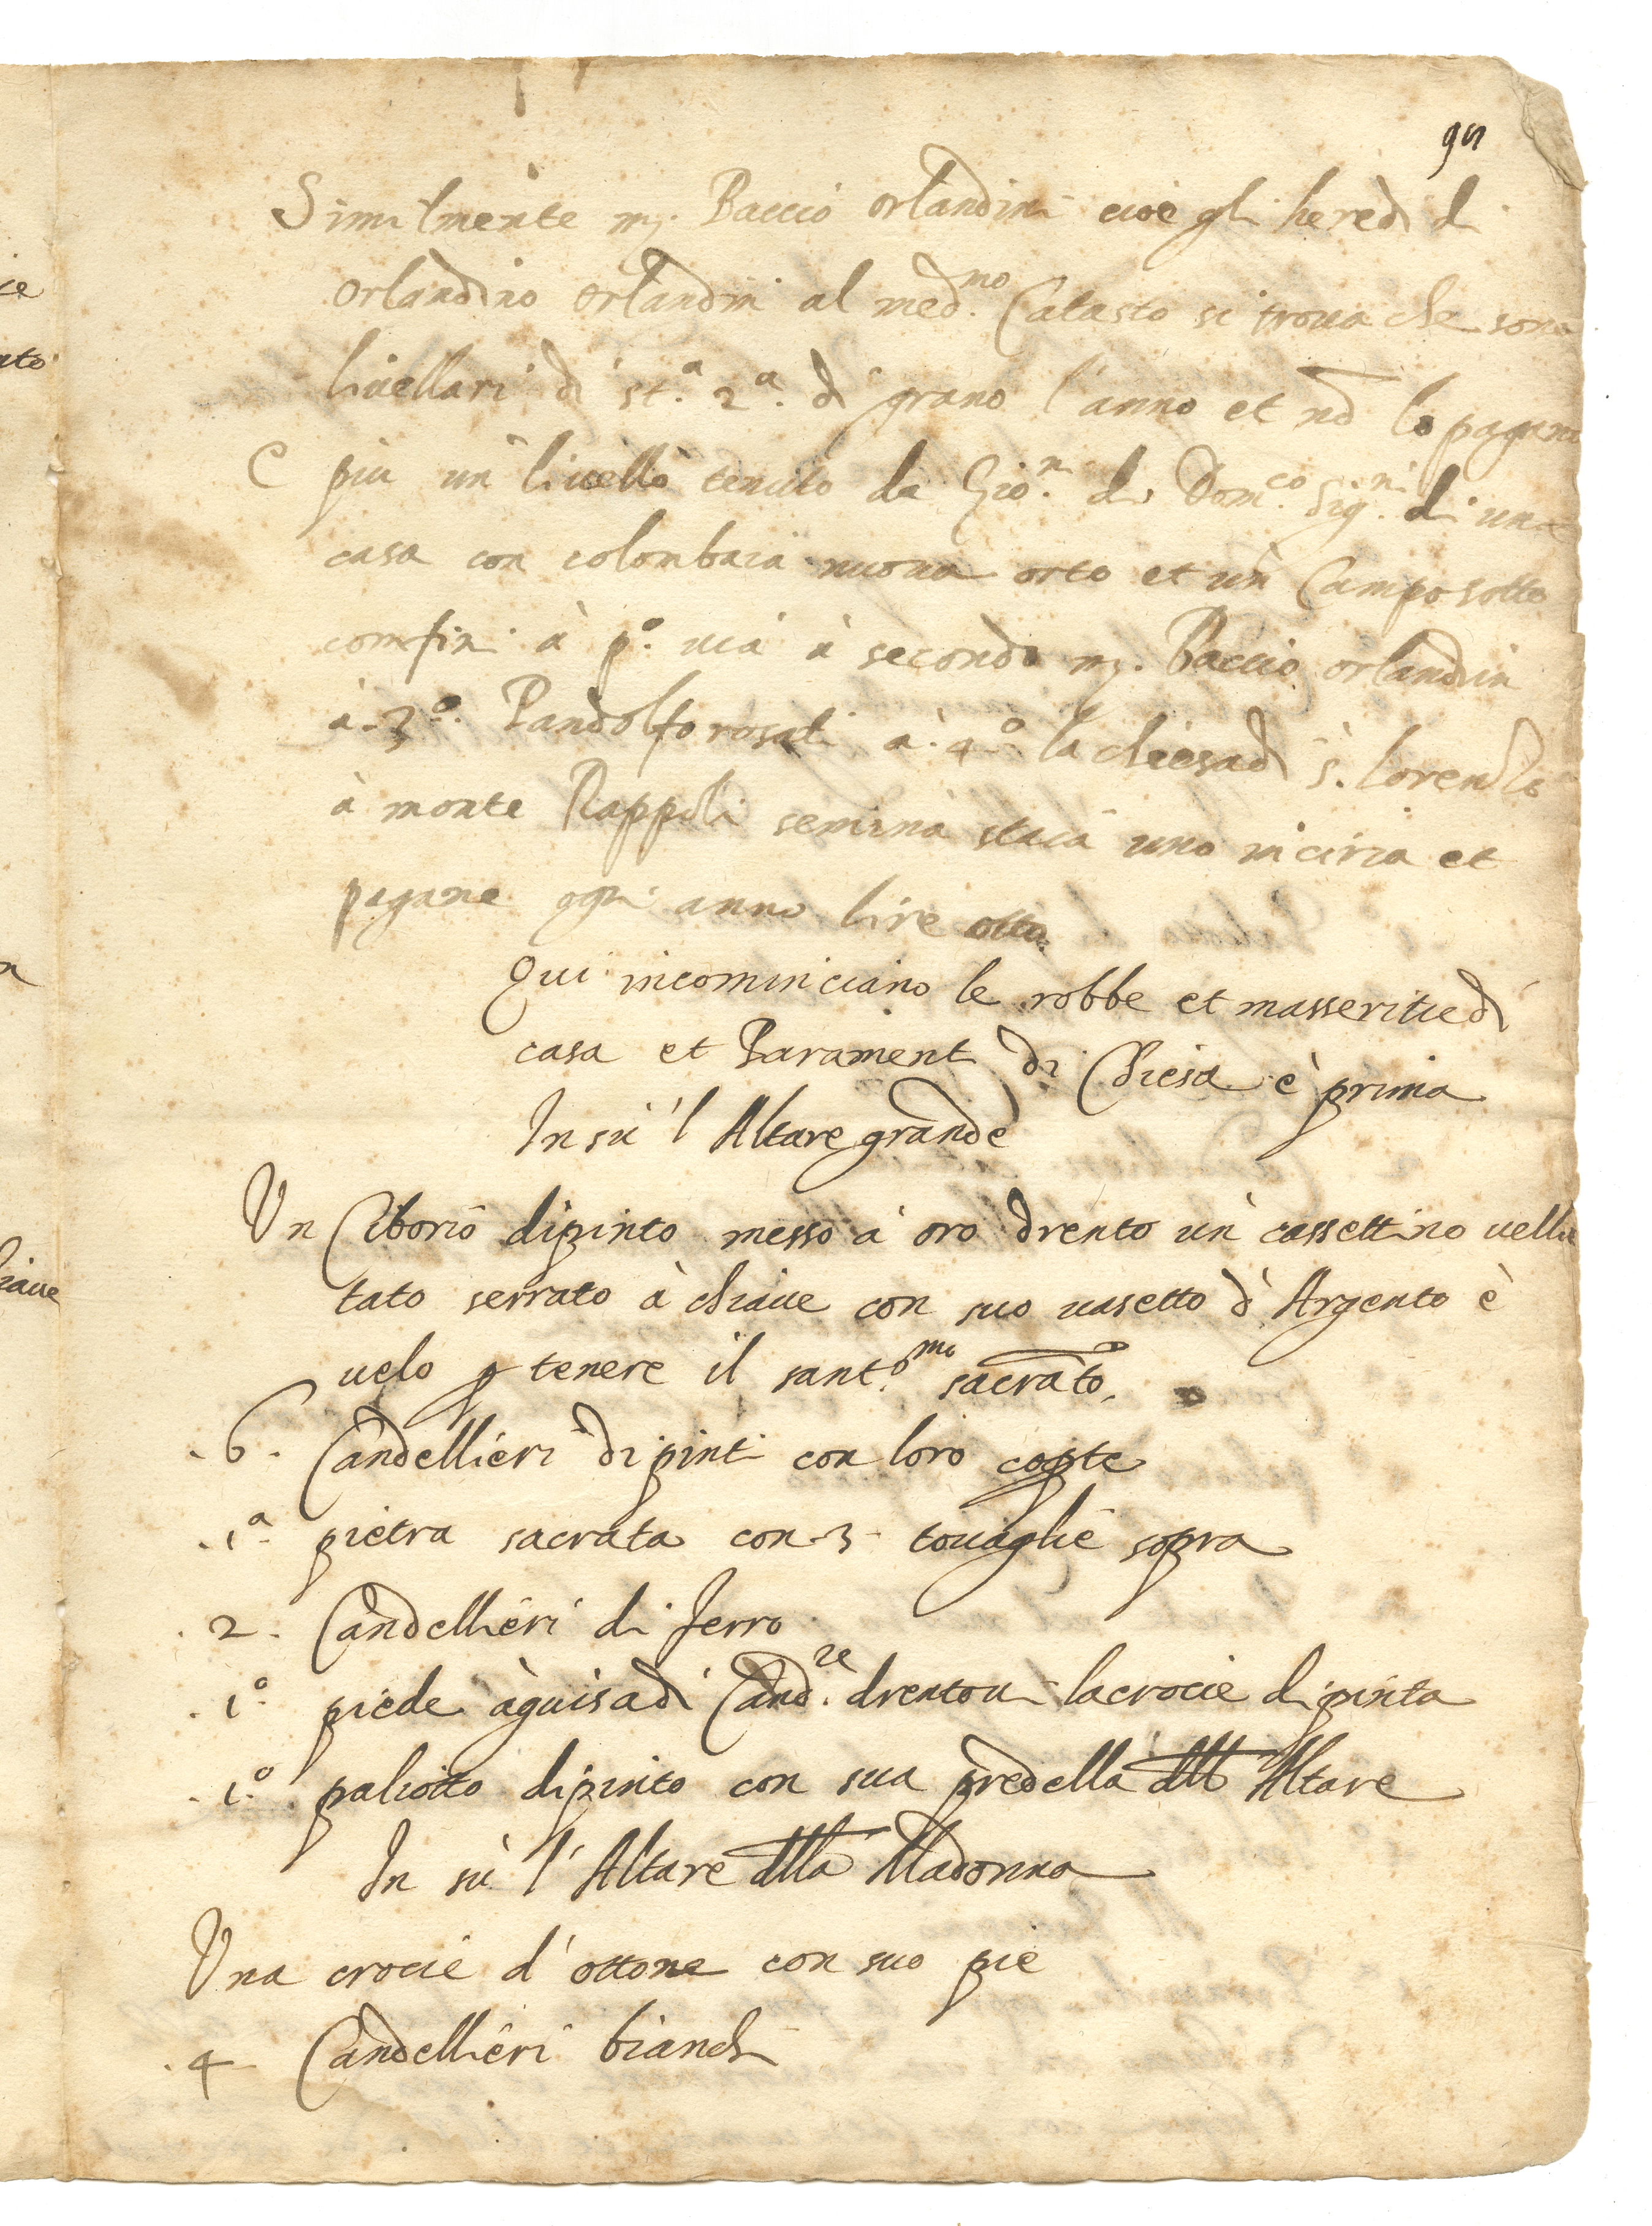 Similmente m. Baccio orlandini cioè gli heredi di
Orlandino orlandini al med.mo Catasto si troua che sono
liuellari di st.a 2a. di grano l'anno et nō lo pagano
E piu un liuello tenuto da Gio.n di Dom.co di una
casa con colombaia nuoua orto et un Campo sotto
comfini à p.o uia à secondo m. Baccio orlandini
à .3.o Pandolfo rosati à .4.o la chiesa di S.
à monte Rappoli semina staia uno in circa et
pagane ogni anno lire otto.
Qui incominciano le robbe et masseritie di
casa et Parament di Chiesa è prima
In su 'l Altare grande
Un Ciborio dipinto messo à oro drento un cassettino uellu
tato serrato à chiaue con suo uasetto d'Argento è
uelo p tenere il sant.mo sacrāto.
.6. Candellieri dipinti con loro copte
.1.a pietra sacrata con 3 touaglie sopra
.2. Candellieri di ferro
.1.o piede à guisa di Cand.re drentoui la crocie dipinta
.1.o paliotto dipinto con sua predella dll Altare
In sù l'Altare dlla Madonna
Una crocie d'ottone con suo pie
.4 Candellieri bianchi